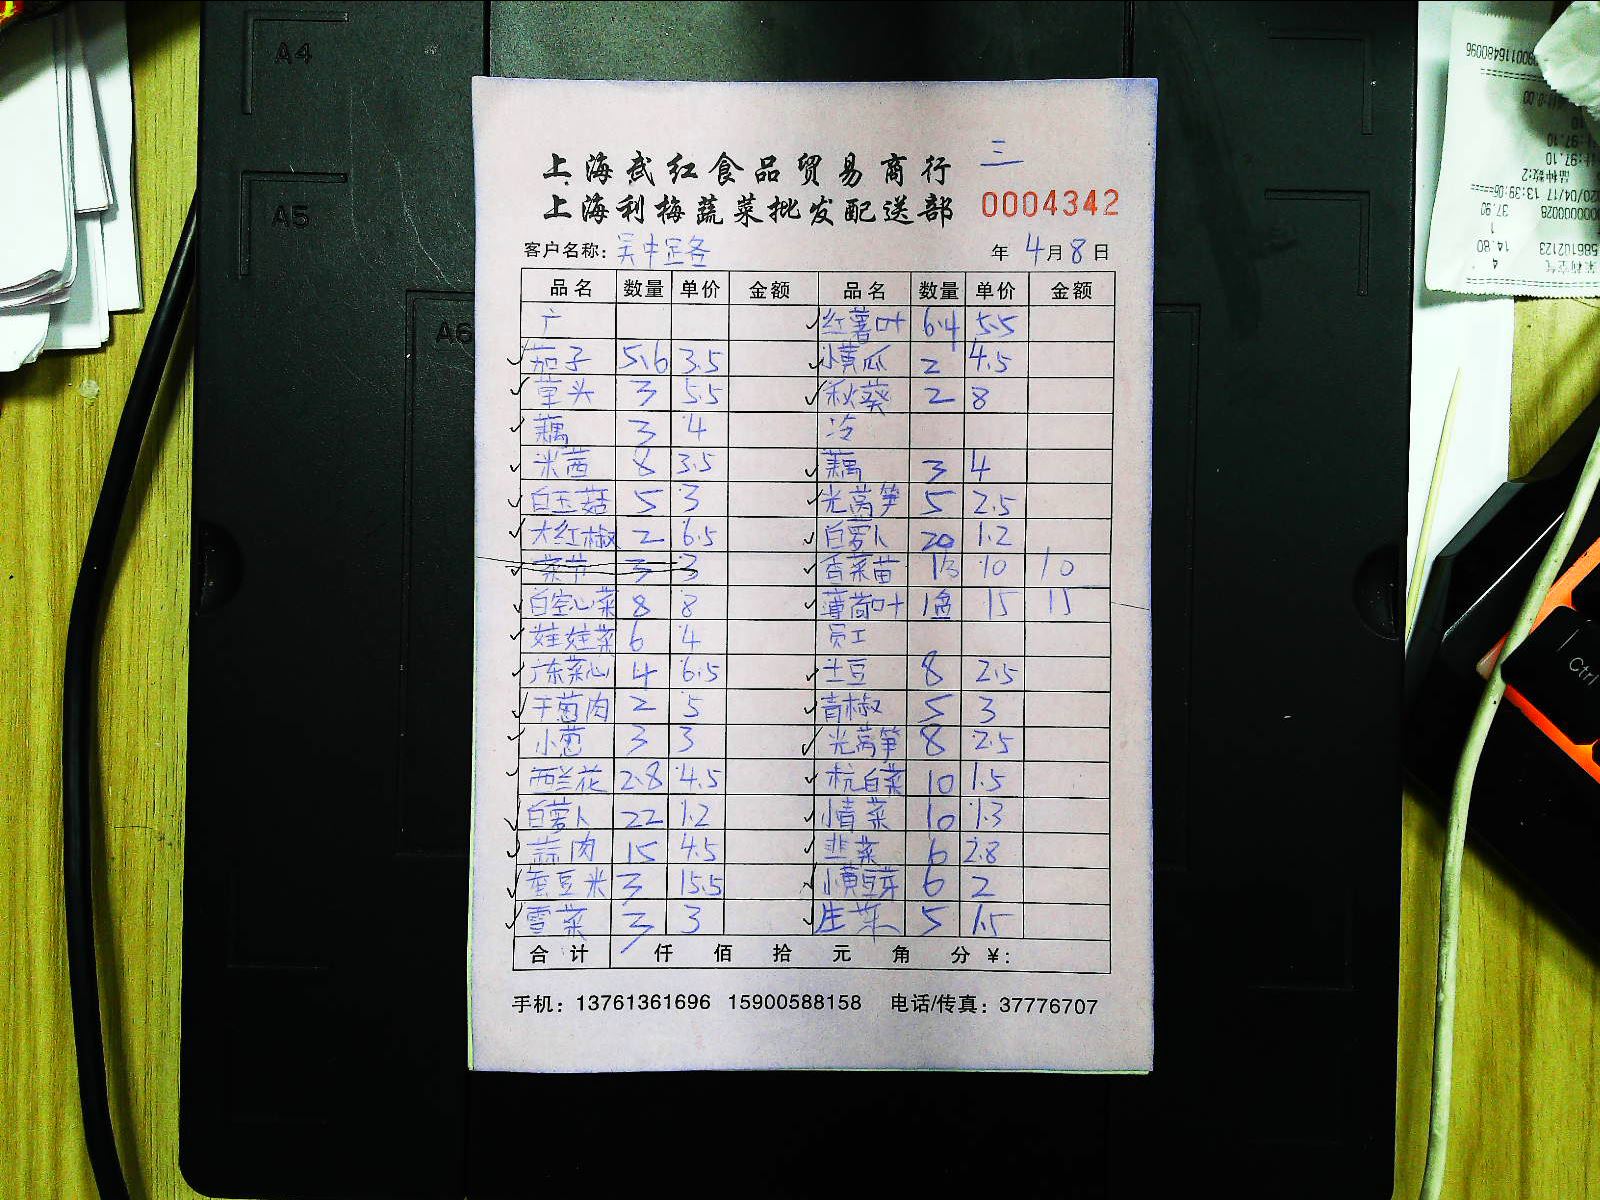 A4
A5
A6
三
上海武红食品贸易商行
上海利梅蔬菜批发配送部 0004342
客户名称: 年 4月8日
品名 数量 单价 金额 品名 数量 单价 金额
广 红薯叶 6.4 5.5
茄子 5.6 3.5 小黄瓜 2 4.5
草头 3 5.5 秋葵 2 8
藕 3 4 冷
米茜 8 3.5 藕 3 4
白玉菇 5 3 光莴笋 5 2.5
大红椒 2 6.5 白萝卜 20 1.2
菜节 3 3 香菜苗 10 10
白空心菜 8 8 薄荷叶 1盒 15 15
娃娃菜 6 4 员工
广东菜心 4 6.5 土豆 8 2.5
干葱肉 2 5 青椒 5 3
小葱 3 3 光莴笋 8 2.5
西兰花 2.8 4.5 杭白菜 10 1.5
白萝卜 22 1.2 小青菜 10 1.3
蒜肉 15 4.5 韭菜 6 2.8
蚕豆米 3 15.5 小黄豆芽 6 2
雪菜 3 3 生菜 5 1.5
合计 仟 佰 拾 元 角 分 ¥:
手机: 13761361696 15900588158 电话/传真: 37776707
Ctrl